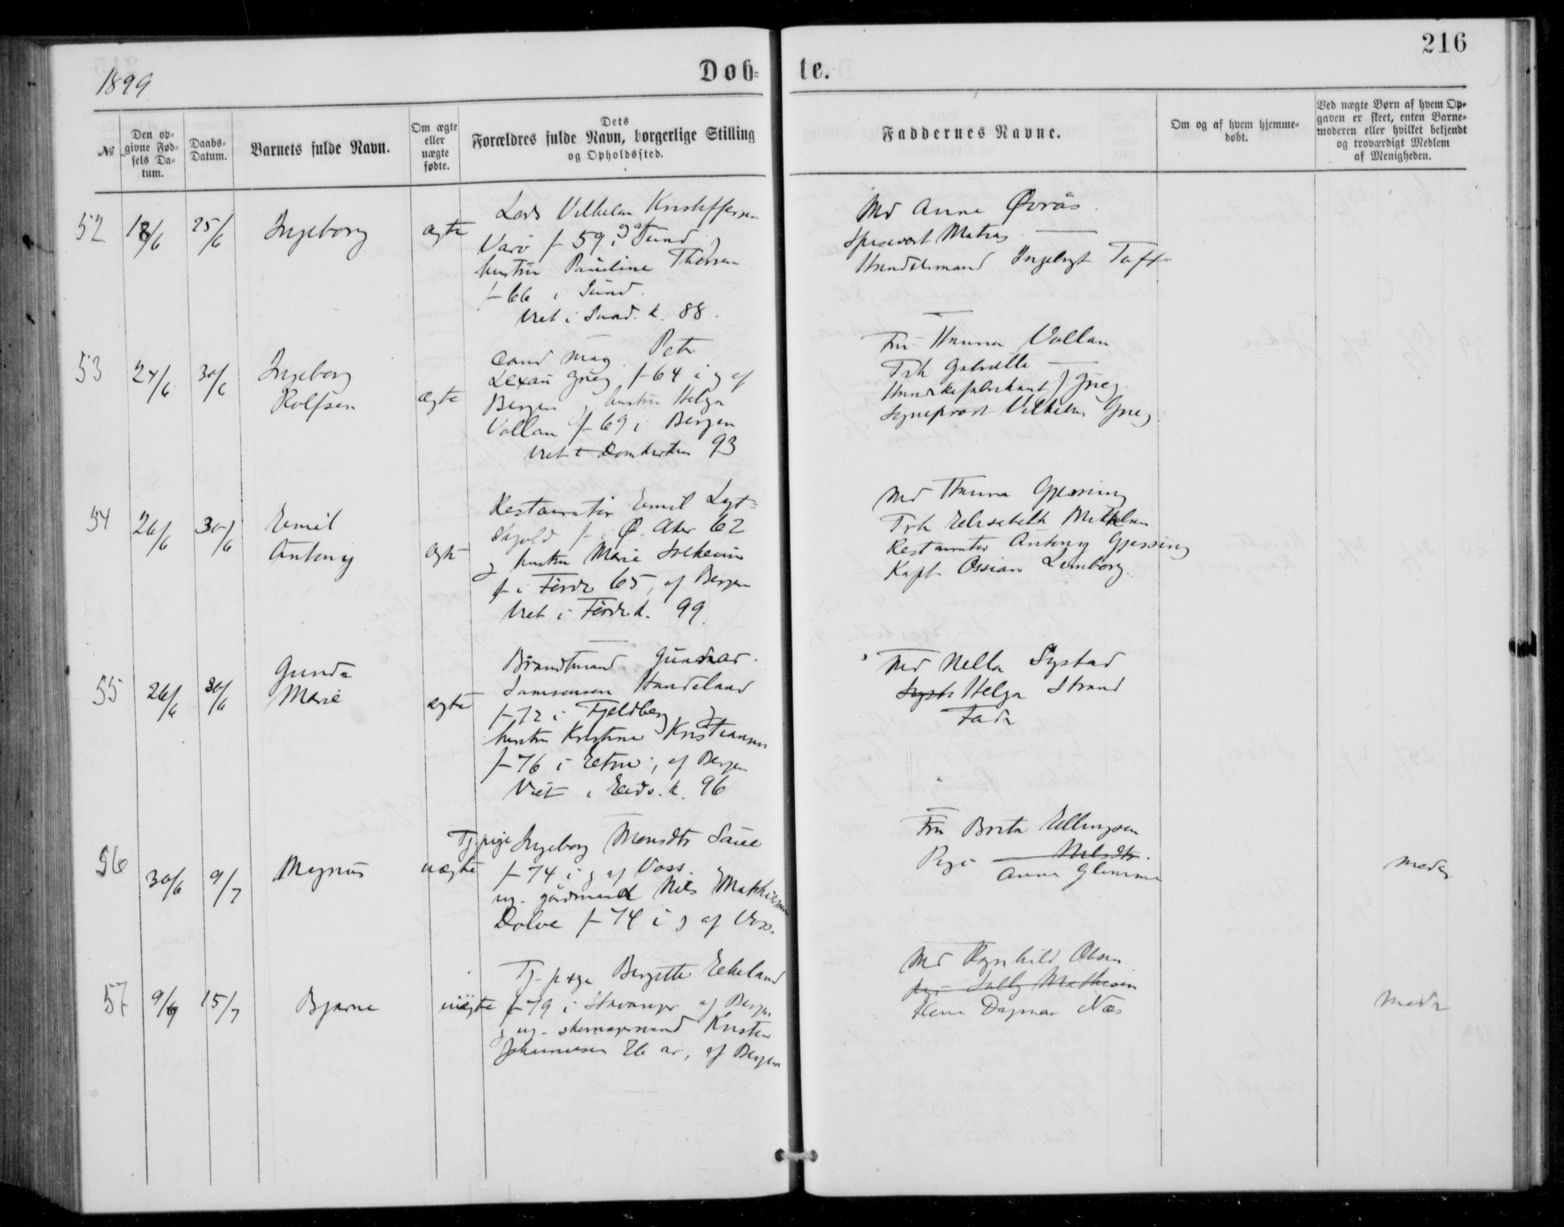 216
1899
Døb-te.
№
Den opgivne Fødsels Datum.
Daabs-Datum.
Barnets fulde Navn.
Om ægte eller uægte fødte.
Dets Forældres fulde Navn, borgerlige Stilling og Opholdssted.
Faddernes Navne.
Om og af hvem hjemmedøbt.
Ved uægte Børn af hvem Opgaven er skeet, enten Barnemoderen eller hvilket bekjendt og troværdigt Medlem af Menigheden.
52 18/6 25/6 Ingeborg ægte
Vilhelm Kristoffersen
f 59 i Sund
hustru Pauline
f 66 i Sund.
Viet i Sund. k. 88.
Md Anna Øvrås
Ingebrigt
53 24/6 30/6 Ingeborg
Rolfsen ægte
cand mag. Petr
Lexau Grieg f 64 i g af
Bergen g hustru Helga
Vollan f 69 i Bergen
Viet i Domkirken 93
Fru Hanna Vollan
Frk Gabrielle
Grieg
Sogneprest Vilhelm Grieg
54 26/6 30/6 Emil
Antony ægte
Restauratør Emil
f. i Ø. Aker 62
g hustru Marie
f i Førde 65, af Bergen
Viet i Førde k. 99.
Md Hanna Gjessing
Frk Elisabeth
Restauratør Antony Gjessing
Kapt. Ossian
55 26/6 30/6 Gunda
Marie ægte
Brandmand Gunnar
Samsonsen Handeland
f 72 i Fjeldberg g
hustru Kristine Kristiansen
f 76 i Etne, af Bergen
Viet i Eids. k. 96
Md Nella Systad
Helga Strand
Fadr
56 30/6 9/7 Magnus uægte
Tj pige Ingeborg Monsdtr Saue
f 74 i g af Voss.
ug. gårdmand Nils
Dolve f 74 i g af Voss.
Fru Brita Ellingsen
Pige Nilsdtr.
Anna
moder
57 9/6 15/7 Bjarne uægte
Tj. pige Bergitte Eikeland
f 79 i Stavanger af Bergen
g ug. skomagersvend
Johannesen 26 år, af Bergen
Md Ragnhild Olsen
Dagmar Næs
modr